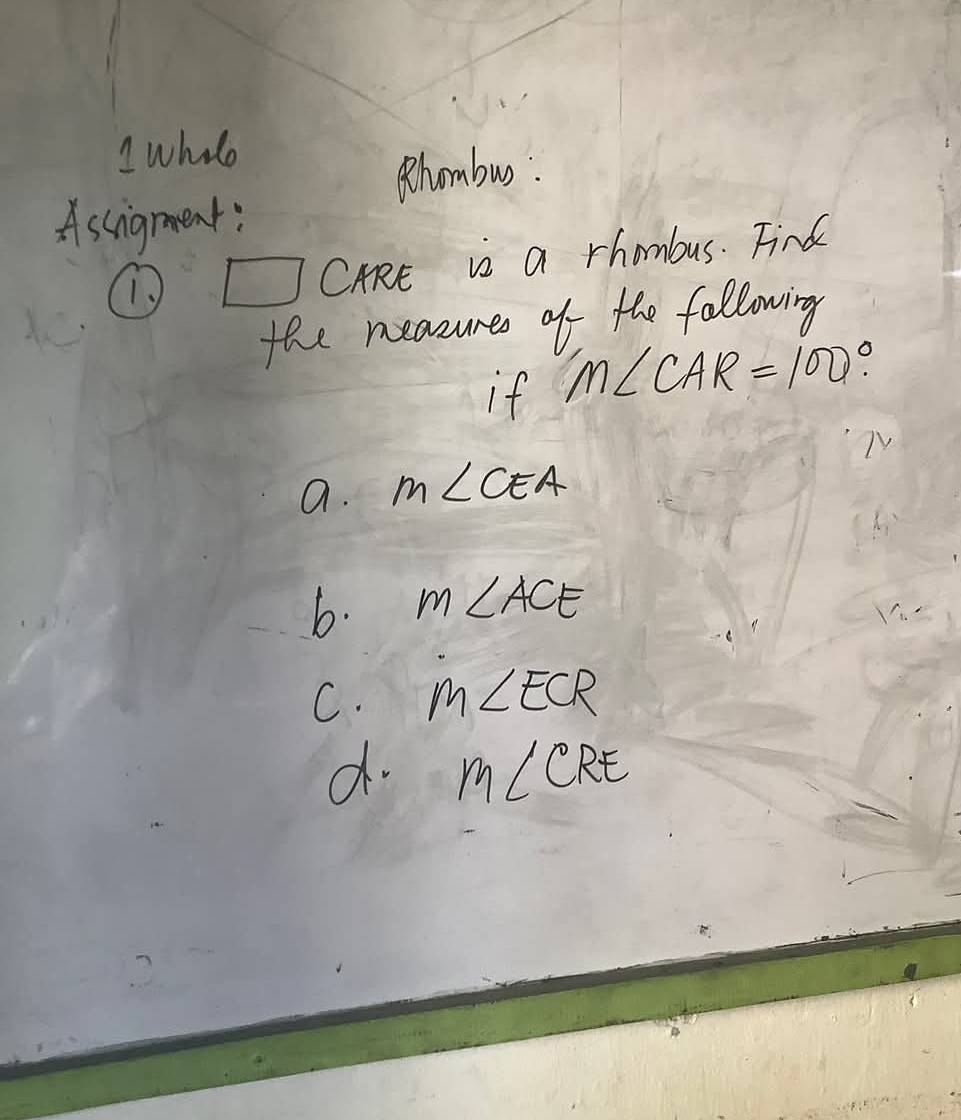 1 Whole
Rhombus:
Assignment:
1. CARE is a rhombus. Find
the measures of the following
if m∠CAR = 100°.
a. m∠CEA
b. m∠ACE
c. m∠ECR
d. m∠CRE